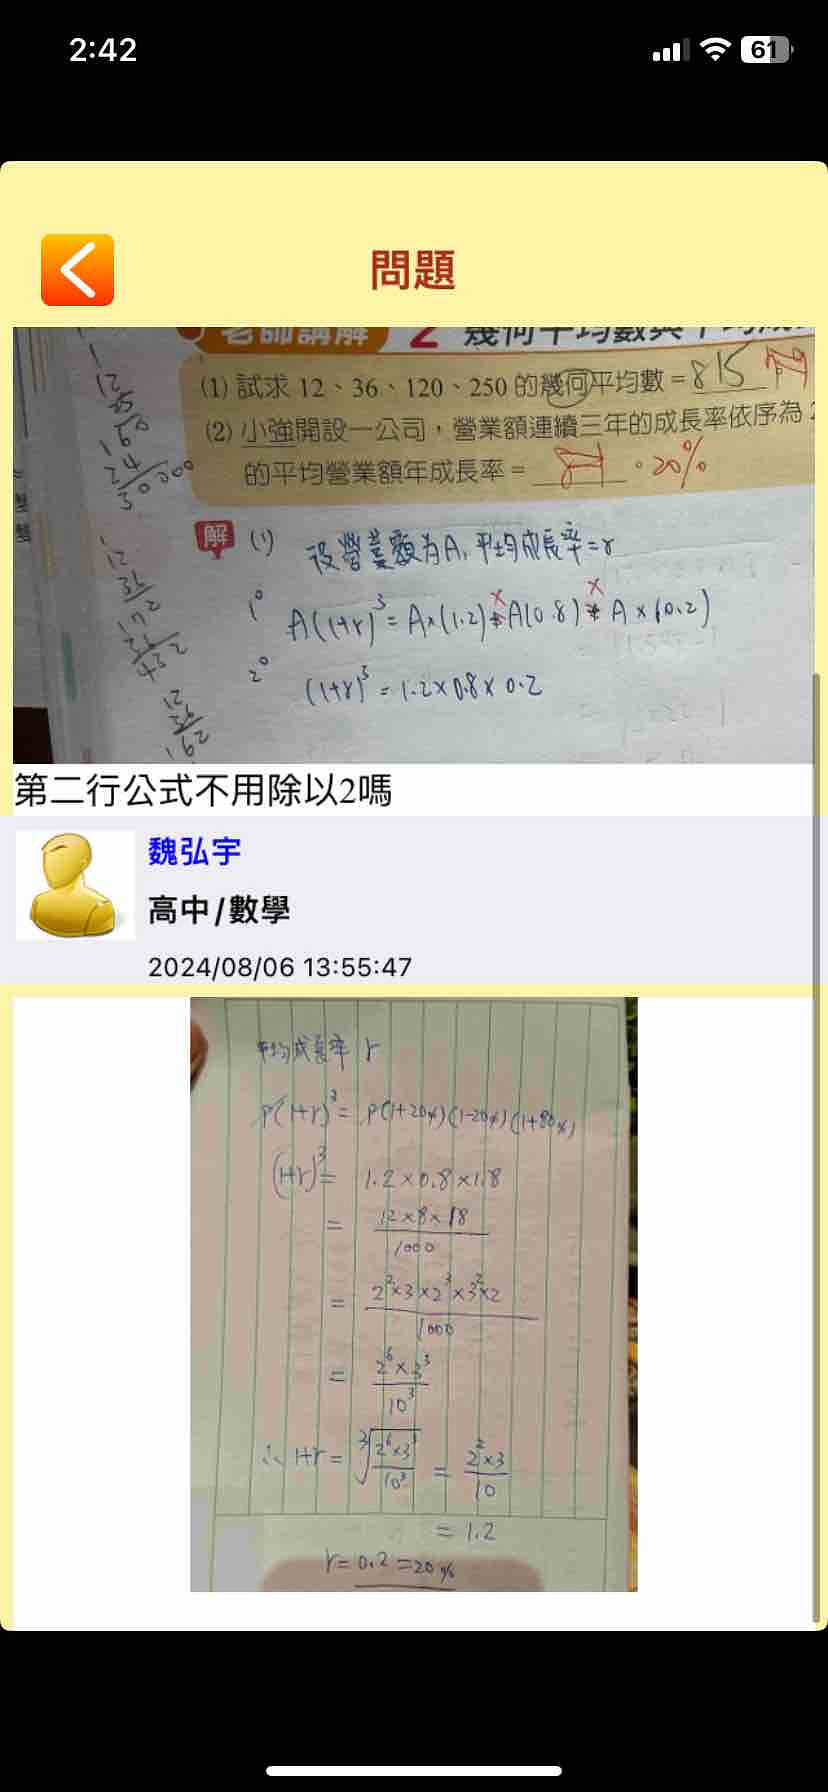 2:42
61
問題
老師講解 2 幾何平均數與平均成
(1) 試求 12、36、120、250 的幾何平均數 = 815
(2) 小強開設一公司，營業額連續三年的成長率依序為 2
的平均營業額年成長率 = 。20%
1
12
160
24
30000
12
36
172
36
432
12
36
162
解 (1) 設營業額為A, 平均成長率=r
1° A(1+r)³ = A×(1.2) × A(0.8) × A×(0.2)
2° (1+r)³ = 1.2×0.8×0.2
第二行公式不用除以2嗎
魏弘宇
高中/數學
2024/08/06 13:55:47
平均成長率 r
P(1+r)³ = P(1+20%)(1-20%)(1+80%)
(1+r)³ = 1.2×0.8×1.8
= 12×8×18
1000
= 2²×3×2³×3²×2
1000
= 2⁶×3³
10³
∴ 1+r = ³√2⁶×3³ = 2²×3
10³ 10
= 1.2
r = 0.2 = 20%